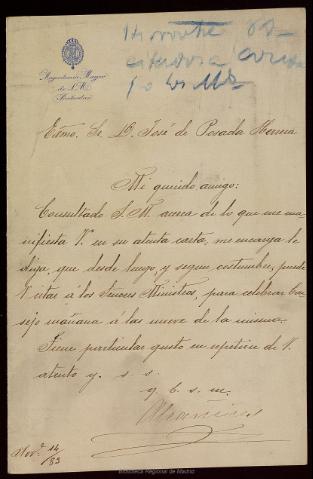 Mayordomía Mayor
de S. M.
Particular
Exmo. Sr. D. José de Posada Herrera
Mi querido amigo:
Consultado S. M. acerca de lo que me ma-
nifiesta V. en su atenta carta, me encarga le
diga, que desde luego, y segun costumbre, puede
V. citar á los Señores Ministros, para celebrar Con-
sejo mañana á las nueve de la misma.
Tiene particular gusto en repetirse de V.
atento y. s. s.
q. b. s. m.
Alcañices
Nov.e 14/83
Biblioteca Regional de Madrid